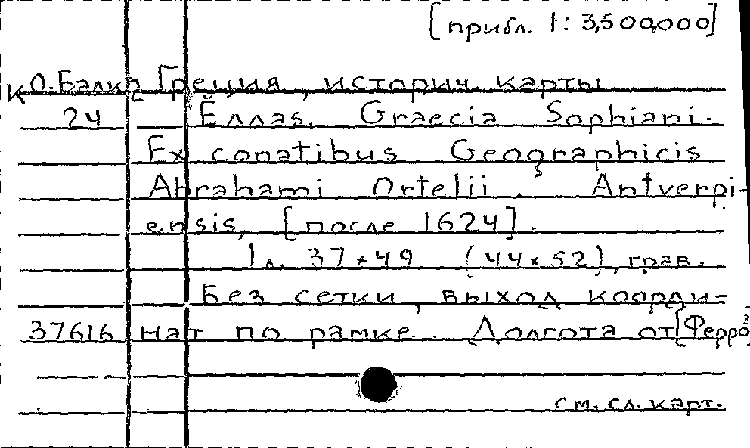 [прибл. 1: 3,500,000]
К О. Балк. Греция, историч. карты
24 Ελλας. Graecia Sophiani.
Ex conatibus Geographicis
Abrahami Ortelii. Antverpi-
ensis, [после 1624].
1 л. 37×49 (44×52), грав.
Без сетки, выход коорди-
37616 нат по рамке. Долгота от [Ферро]
см. сл. карт.